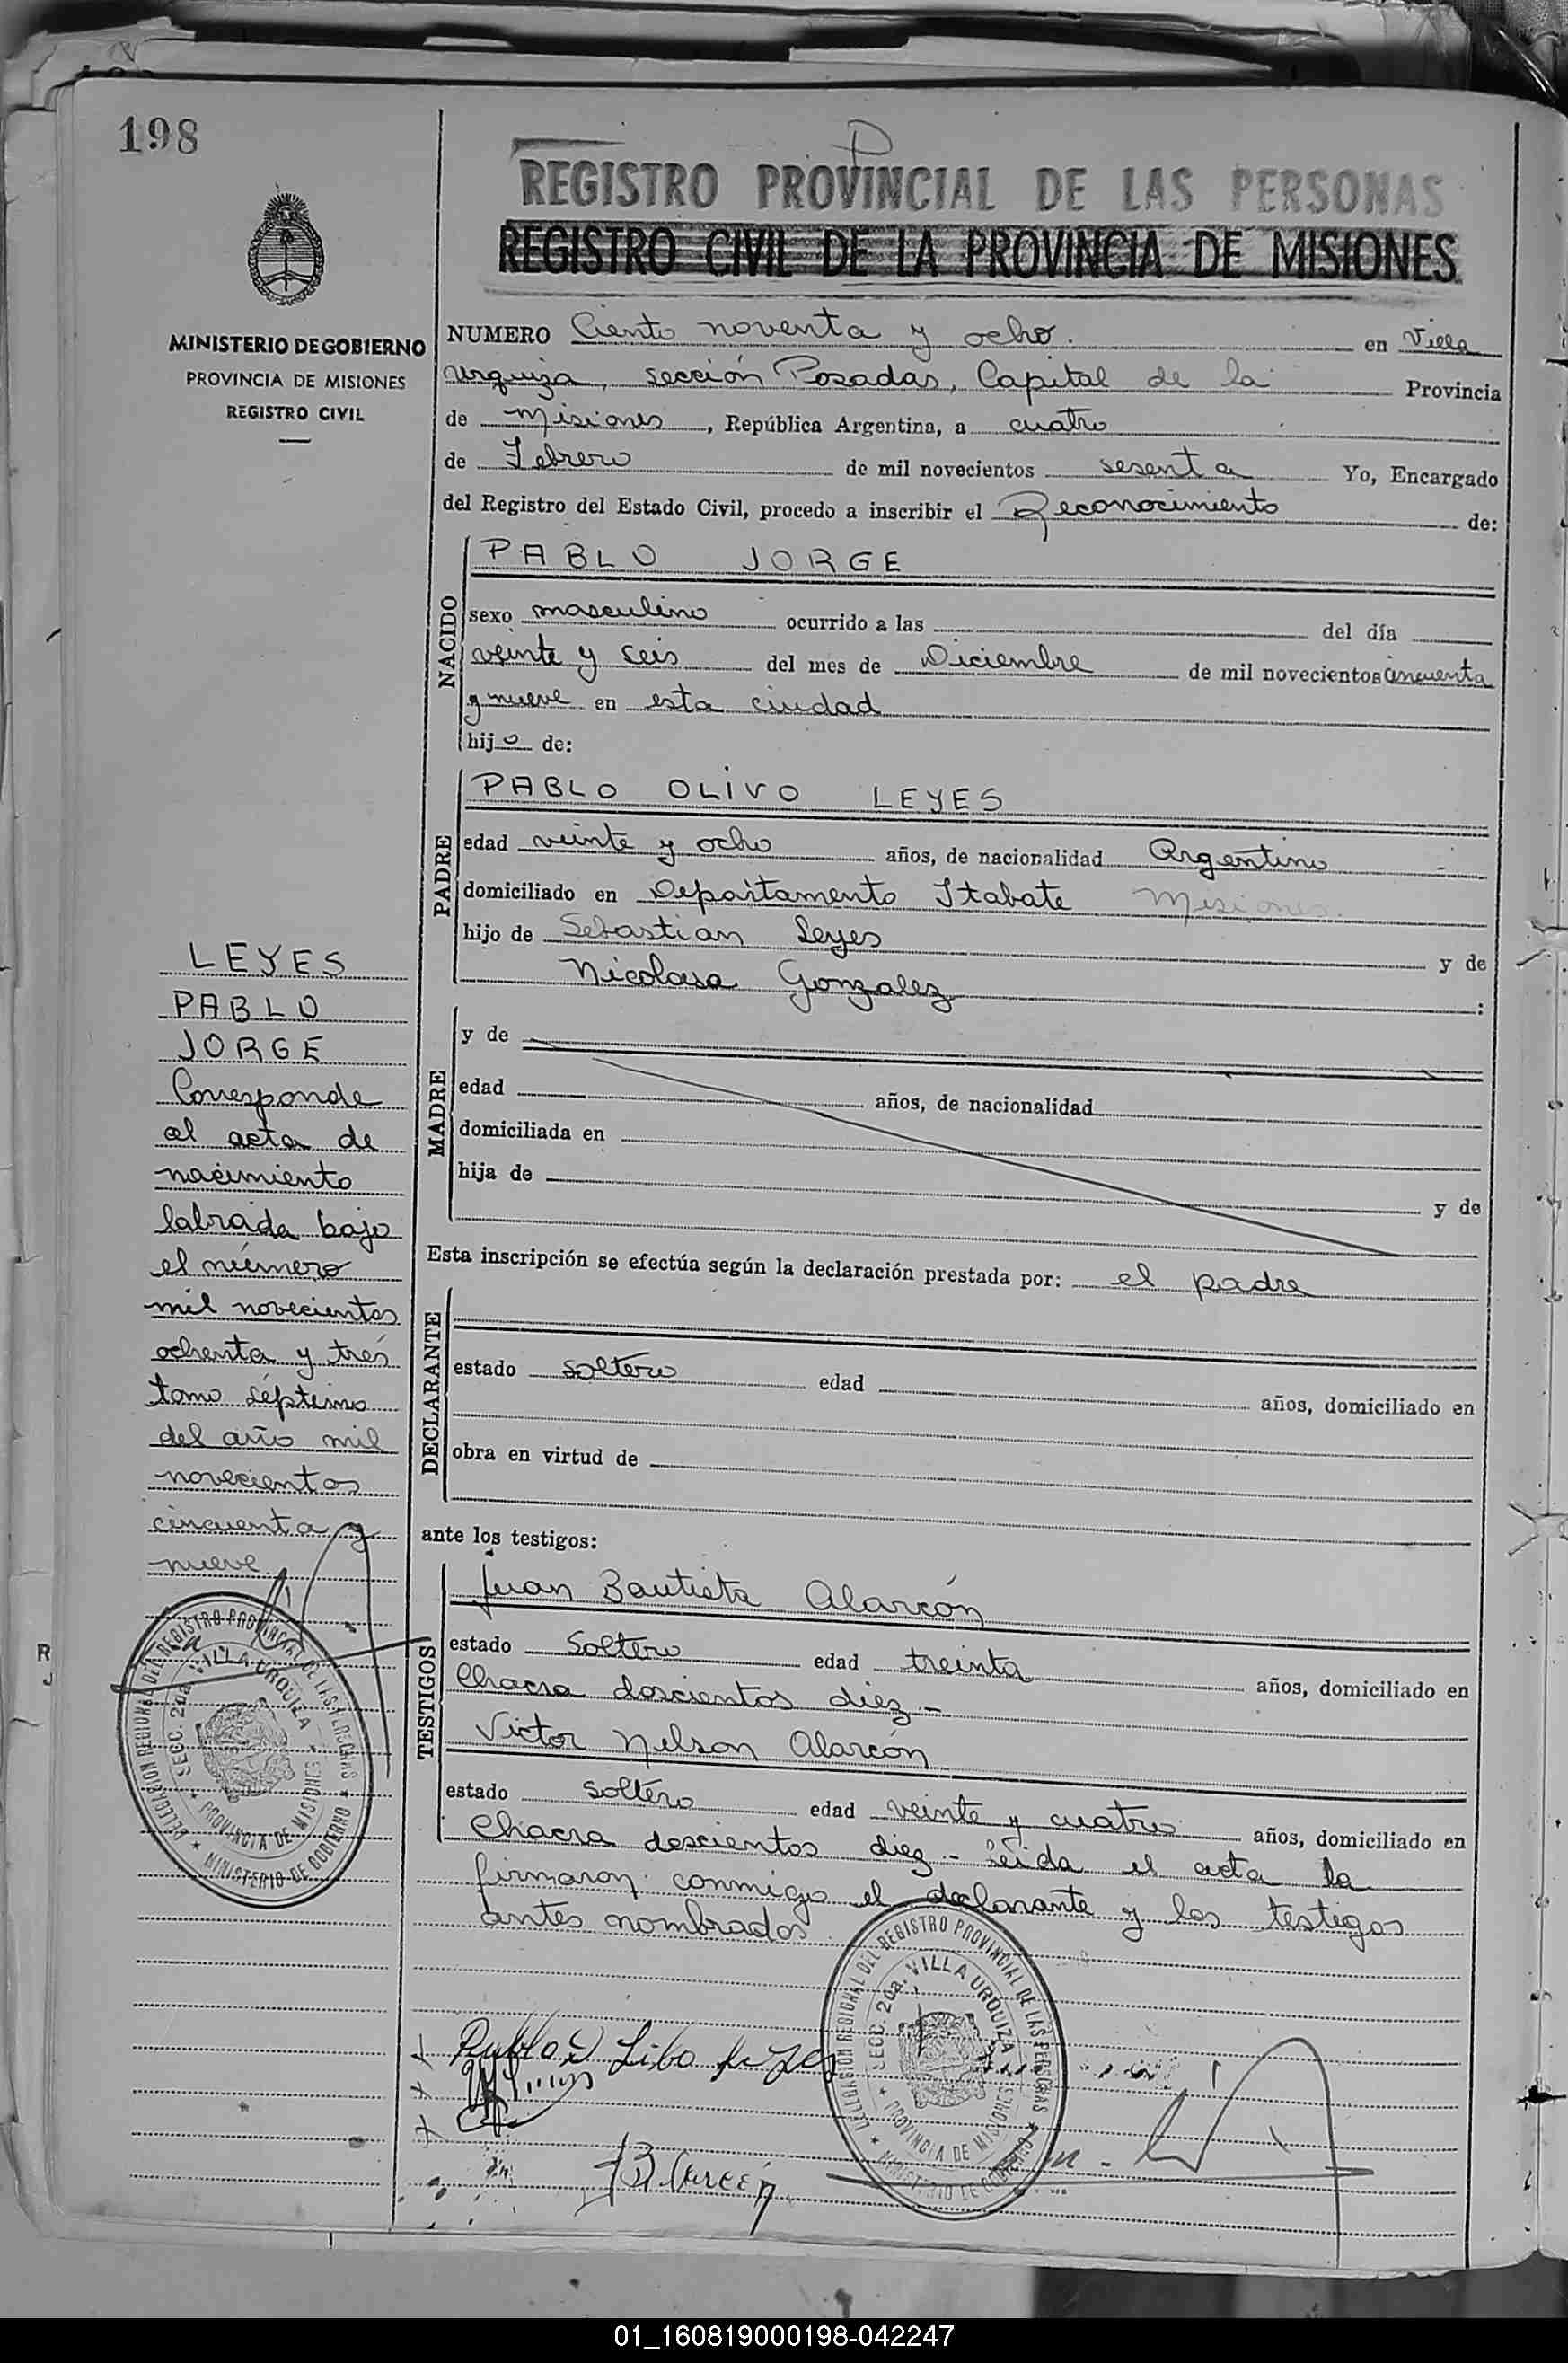 198
REGISTRO PROVINCIAL DE LAS PERSONAS
REGISTRO CIVIL DE LA PROVINCIA DE MISIONES
MINISTERIO DE GOBIERNO
PROVINCIA DE MISIONES
REGISTRO CIVIL
NUMERO Ciento noventa y ocho. en Villa
Urquiza, sección Posadas, Capital de la Provincia
de Misiones, República Argentina, a cuatro
de Febrero de mil novecientos sesenta Yo, Encargado
del Registro del Estado Civil, procedo a inscribir el Reconocimiento de:
NACIDO
PABLO JORGE
sexo masculino ocurrido a las del día
veinte y seis del mes de Diciembre de mil novecientos cincuenta
y nueve en esta ciudad
hijo de:
PADRE
PABLO OLIVO LEYES
edad veinte y ocho años, de nacionalidad Argentino
domiciliado en Departamento Itabate Misiones.
hijo de Sebastian Leyes y de
Nicolasa Gonzalez :
MADRE
y de
edad años, de nacionalidad
domiciliada en
hija de y de
Esta inscripción se efectúa según la declaración prestada por: el padre
DECLARANTE
estado soltero edad años, domiciliado en
obra en virtud de
ante los testigos:
TESTIGOS
Juan Bautista Alarcón
estado soltero edad treinta años, domiciliado en
Chacra doscientos diez -
Victor Nelson Alarcón
estado soltero edad veinte y cuatro años, domiciliado en
Chacra doscientos diez - Leida el acta la
firmaron conmigo el declarante y los testigos
antes nombrados
LEYES
PABLO
JORGE
Corresponde
al acta de
nacimiento
labrada bajo
el número
mil novecientos
ochenta y tres
tomo séptimo
del año mil
novecientos
cincuenta y
nueve
DELEGACION REGIONAL DEL REGISTRO PROVINCIAL DE LAS PERSONAS
SECC. 2da. VILLA URQUIZA
PROVINCIA DE MISIONES
MINISTERIO DE GOBIERNO
DELEGACION REGIONAL DEL REGISTRO PROVINCIAL DE LAS PERSONAS
SECC. 2da. VILLA URQUIZA
PROVINCIA DE MISIONES
MINISTERIO DE GOBIERNO
01_160819000198-042247